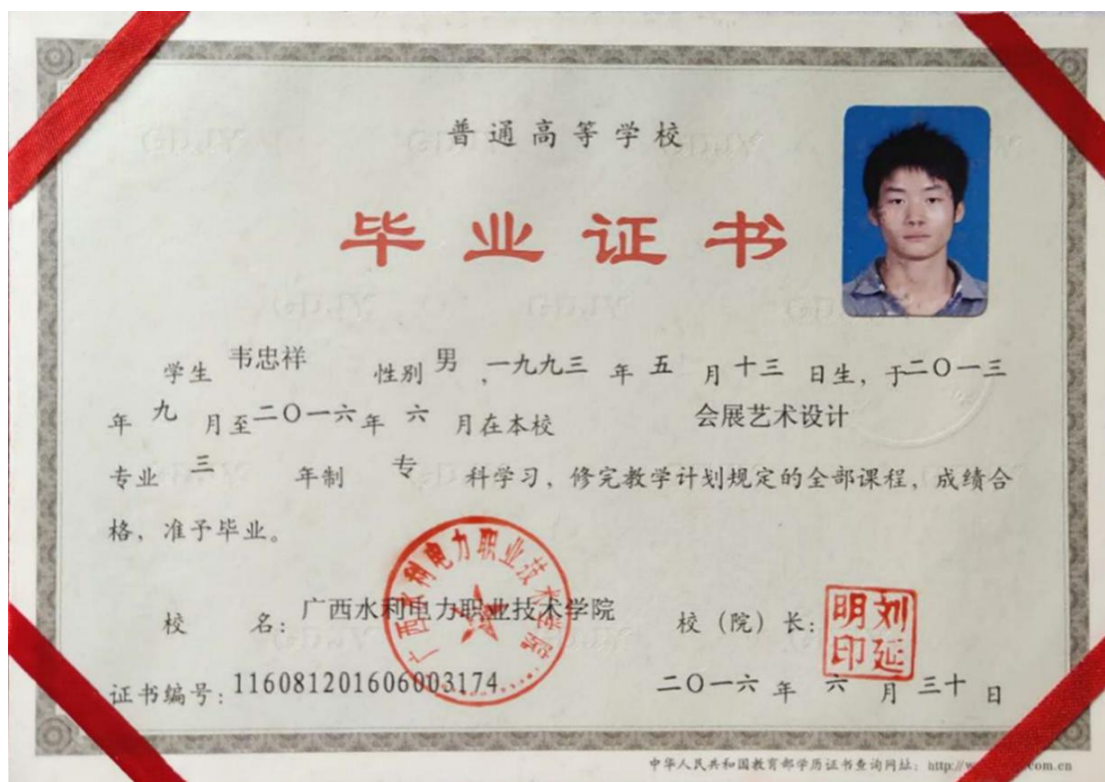 普通高等学校
毕业证书
学生 韦忠祥 性别 男 ,一九九三 年 五 月 十三 日生, 于二〇一三
年 九 月至二〇一六年 六 月在本校 会展艺术设计
专业 三 年制 专 科学习, 修完教学计划规定的全部课程, 成绩合
格, 准予毕业。
广西水利电力职业技术学院
校 名: 广西水利电力职业技术学院 校 (院) 长: 刘延明印
证书编号: 116081201606003174 二〇一六 年 六 月 三十 日
中华人民共和国教育部学历证书查询网址: http://w com.cn